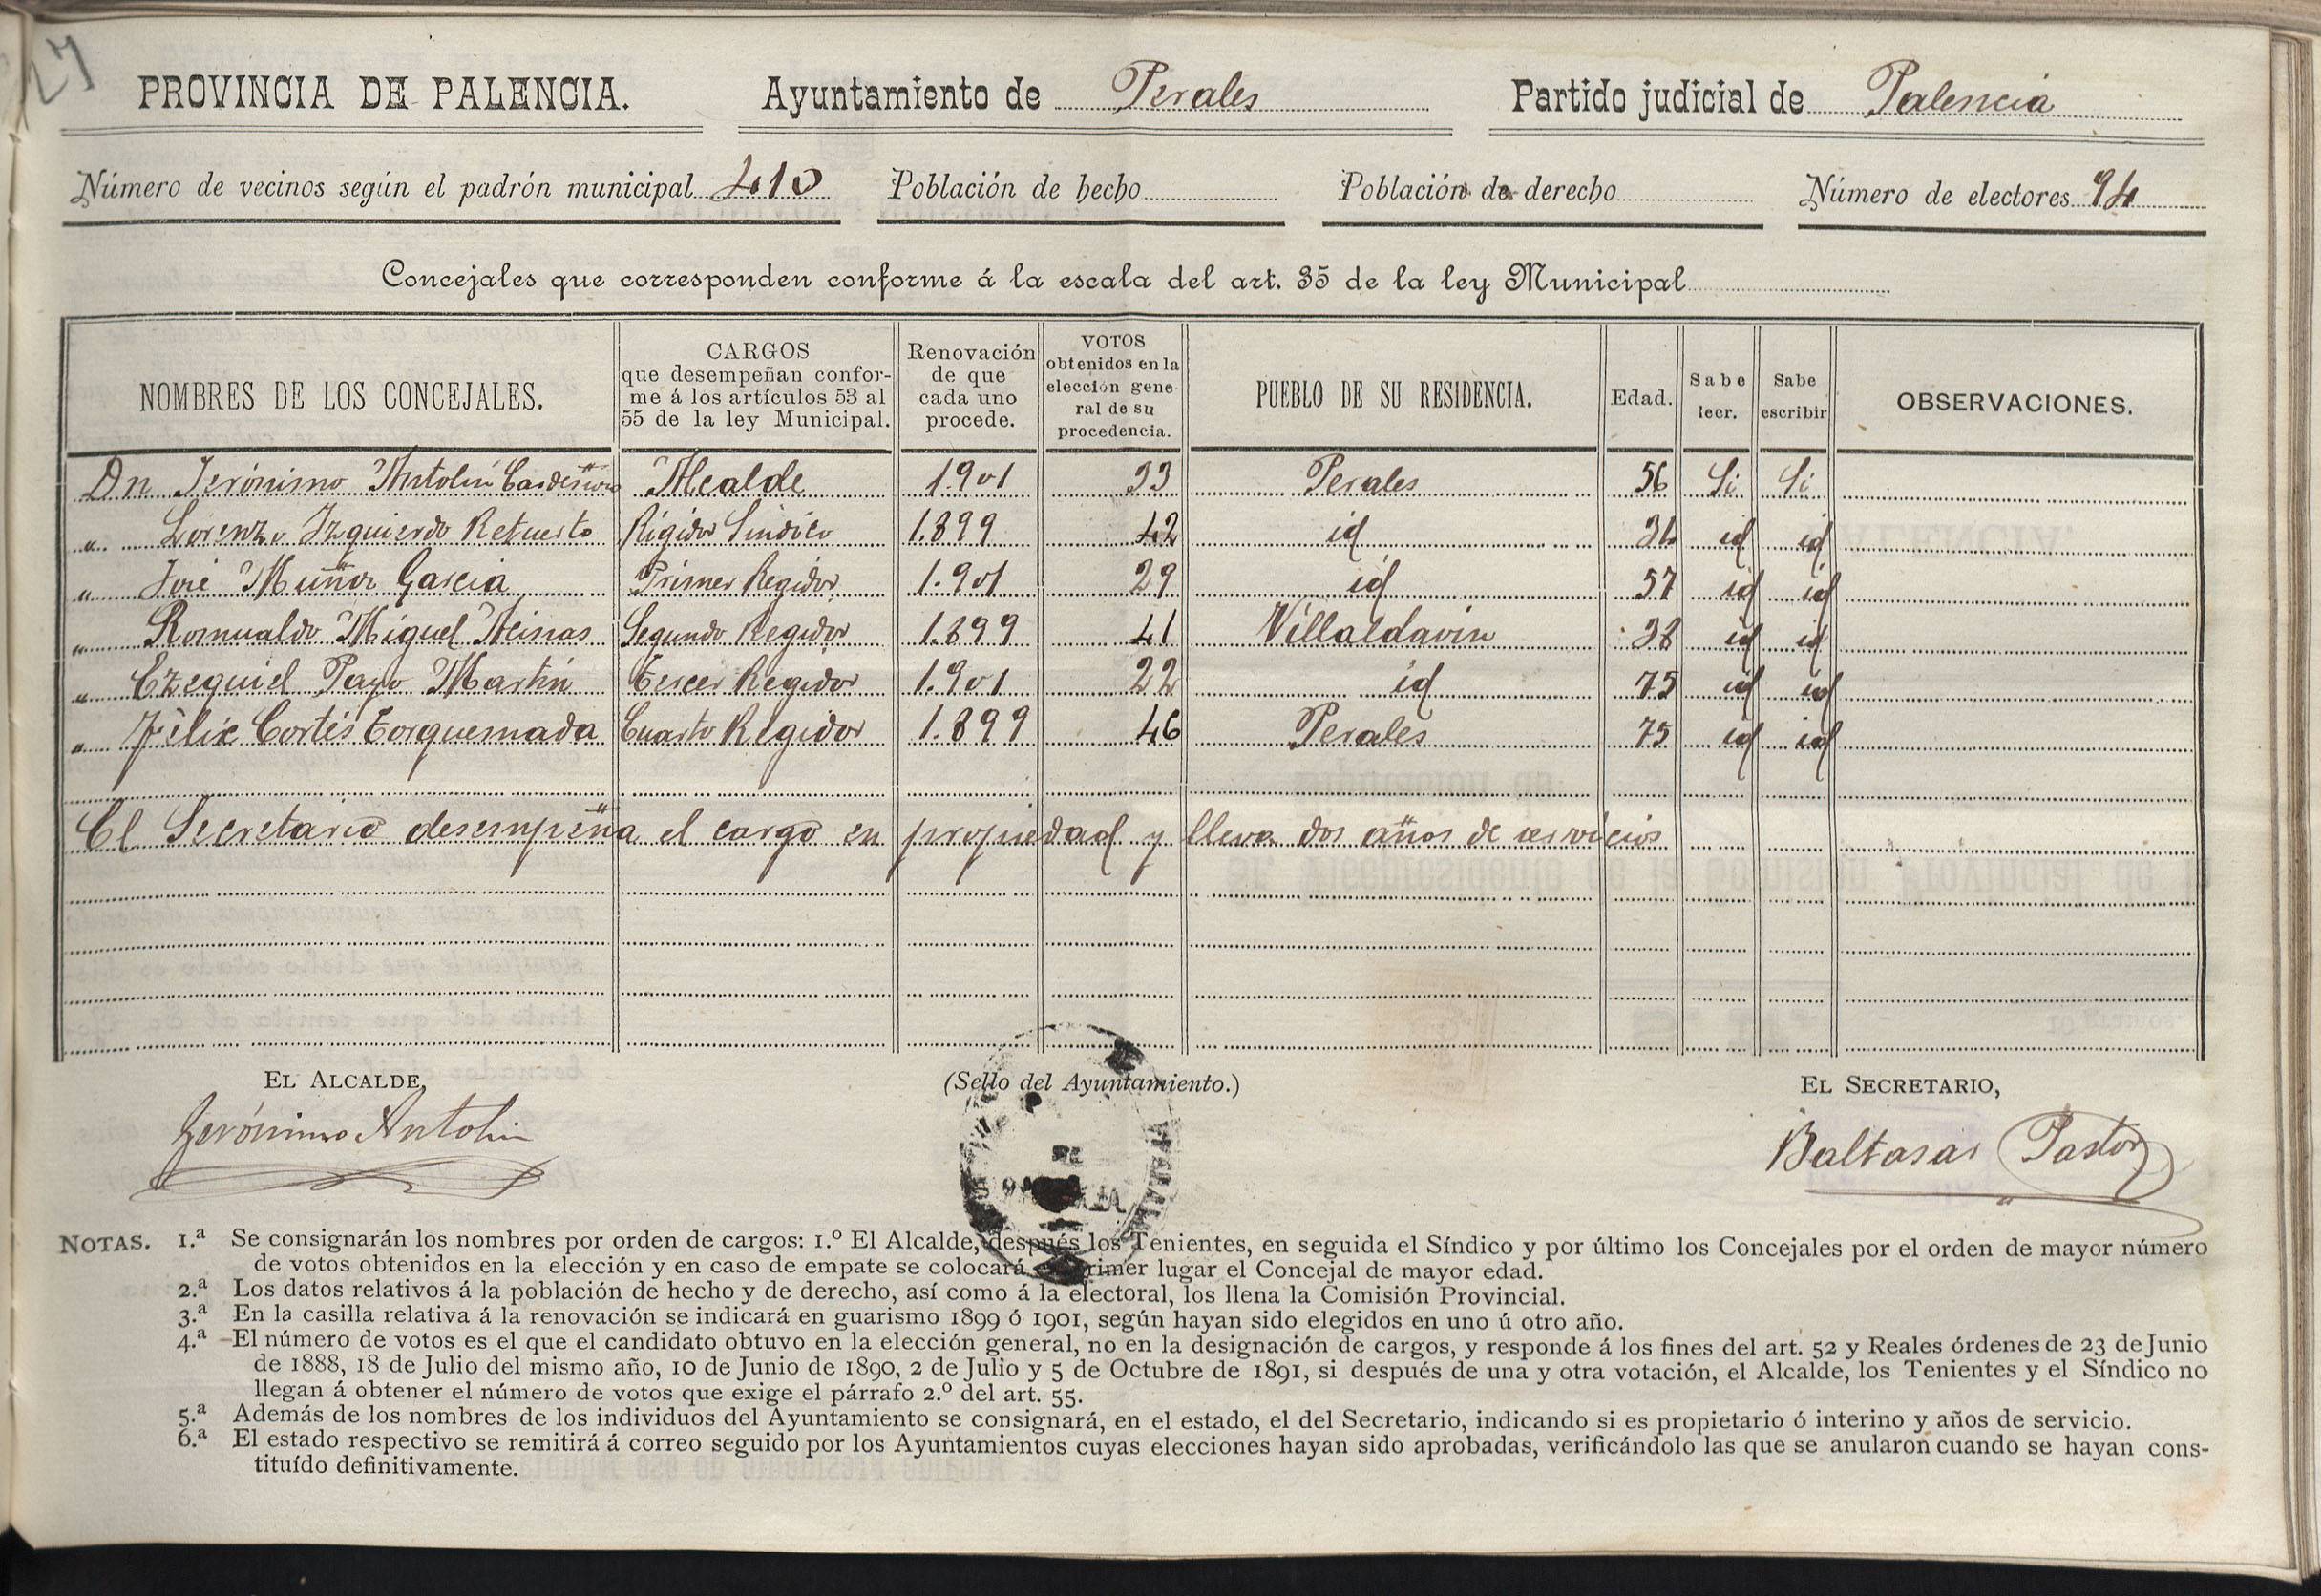 27
PROVINCIA DE PALENCIA. Ayuntamiento de Perales Partido judicial de Palencia
Número de vecinos según el padrón municipal 410 Población de hecho Población de derecho Número de electores 94
Concejales que corresponden conforme á la escala del art. 35 de la ley Municipal
NOMBRES DE LOS CONCEJALES. CARGOS que desempeñan conforme á los artículos 53 al 55 de la ley Municipal. Renovación de que cada uno procede. VOTOS obtenidos en la elección general de su procedencia. PUEBLO DE SU RESIDENCIA. Edad. Sabe leer. Sabe escribir OBSERVACIONES.
Dn Jerónimo Antolín Cardeñoso Alcalde 1901 33 Perales 56 Si Si
" Lorenzo Izquierdo Retuerto Rigidor Sindico 1.899 42 id id id
" José Muñoz Garcia Primer Regidor 1.901 29 id 57 id id
" Romualdo Miguel Segundo Regidor 1.899 41 Villaldavin 38 id id
" Ezequiel Payo Martin Tercer Regidor 1.901 22 id 75 id id
" Félix Cortés Torquemada Cuarto Regidor 1.899 46 Perales 75 id id
El Secretario desempeña el cargo en propiedad y lleva dos años de servicios
EL ALCALDE, (Sello del Ayuntamiento.) EL SECRETARIO,
Jerónimo Antolin Baltasar Pastor
NOTAS. 1.ª Se consignarán los nombres por orden de cargos: 1.º El Alcalde, después los Tenientes, en seguida el Síndico y por último los Concejales por el orden de mayor número
de votos obtenidos en la elección y en caso de empate se colocará primer lugar el Concejal de mayor edad.
2.ª Los datos relativos á la población de hecho y de derecho, así como á la electoral, los llena la Comisión Provincial.
3.ª En la casilla relativa á la renovación se indicará en guarismo 1899 ó 1901, según hayan sido elegidos en uno ú otro año.
4.ª El número de votos es el que el candidato obtuvo en la elección general, no en la designación de cargos, y responde á los fines del art. 52 y Reales órdenes de 23 de Junio
de 1888, 18 de Julio del mismo año, 10 de Junio de 1890, 2 de Julio y 5 de Octubre de 1891, si después de una y otra votación, el Alcalde, los Tenientes y el Síndico no
llegan á obtener el número de votos que exige el párrafo 2.º del art. 55.
5.ª Además de los nombres de los individuos del Ayuntamiento se consignará, en el estado, el del Secretario, indicando si es propietario ó interino y años de servicio.
6.ª El estado respectivo se remitirá á correo seguido por los Ayuntamientos cuyas elecciones hayan sido aprobadas, verificándolo las que se anularon cuando se hayan cons-
tituído definitivamente.